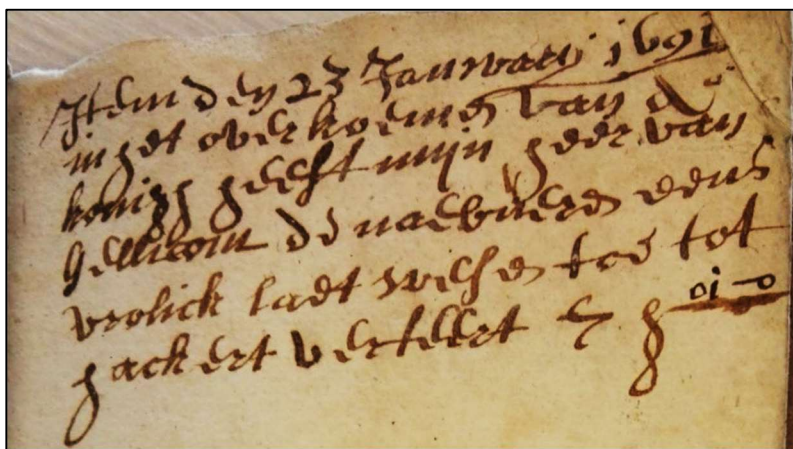 Item den 23 Januwarij 1691
in het overkoemen van de
koningh heeft mijn heer van
Gellicom de naebueren eens
vrolick laet wesen toe tot
hackert verteert